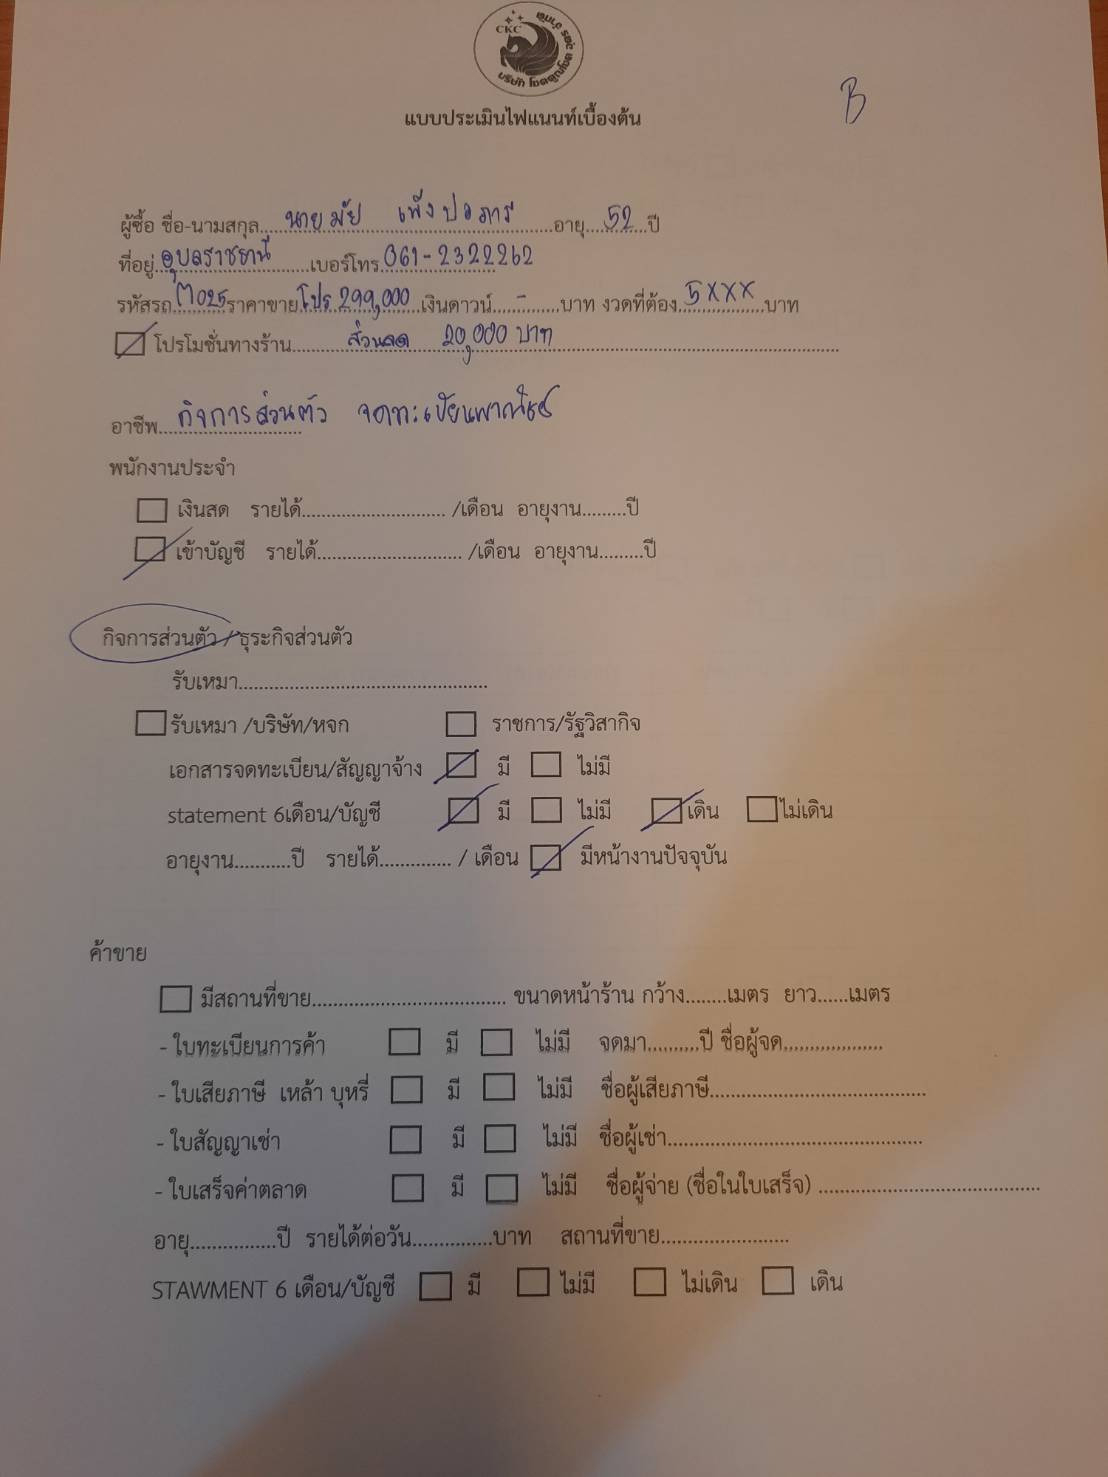 CKC
บริษัท โชคคูณโชค
แบบประเมินไฟแนนท์เบื้องต้น
B
ผู้ซื้อ ชื่อ-นามสกุล....นาย มัย เพ็งปอภาร....อายุ....52....ปี
ที่อยู่....อุบลราชธานี....เบอร์โทร.061-2322262
รหัสรถ.M025.ราคาขาย.โปร 299,000.เงินดาวน์....-....บาท งวดที่ต้อง.5XXX.บาท
โปรโมชั่นทางร้าน....ส่วนลด 20,000 บาท....
อาชีพ....กิจการส่วนตัว จดทะเบียนพาณิชย์
พนักงานประจำ
เงินสด รายได้............/เดือน อายุงาน.........ปี
เข้าบัญชี รายได้............/เดือน อายุงาน.........ปี
กิจการส่วนตัว / ธุระกิจส่วนตัว
รับเหมา............
รับเหมา /บริษัท/หจก ราชการ/รัฐวิสากิจ
เอกสารจดทะเบียน/สัญญาจ้าง มี ไม่มี
statement 6เดือน/บัญชี มี ไม่มี เดิน ไม่เดิน
อายุงาน...........ปี รายได้.............. / เดือน มีหน้างานปัจจุบัน
ค้าขาย
มีสถานที่ขาย............ ขนาดหน้าร้าน กว้าง........เมตร ยาว......เมตร
- ใบทะเบียนการค้า มี ไม่มี จดมา..........ปี ชื่อผู้จด............
- ใบเสียภาษี เหล้า บุหรี่ มี ไม่มี ชื่อผู้เสียภาษี............
- ใบสัญญาเช่า มี ไม่มี ชื่อผู้เช่า............
- ใบเสร็จค่าตลาด มี ไม่มี ชื่อผู้จ่าย (ชื่อในใบเสร็จ) ............
อายุ................ปี รายได้ต่อวัน...............บาท สถานที่ขาย............
STAWMENT 6 เดือน/บัญชี มี ไม่มี ไม่เดิน เดิน